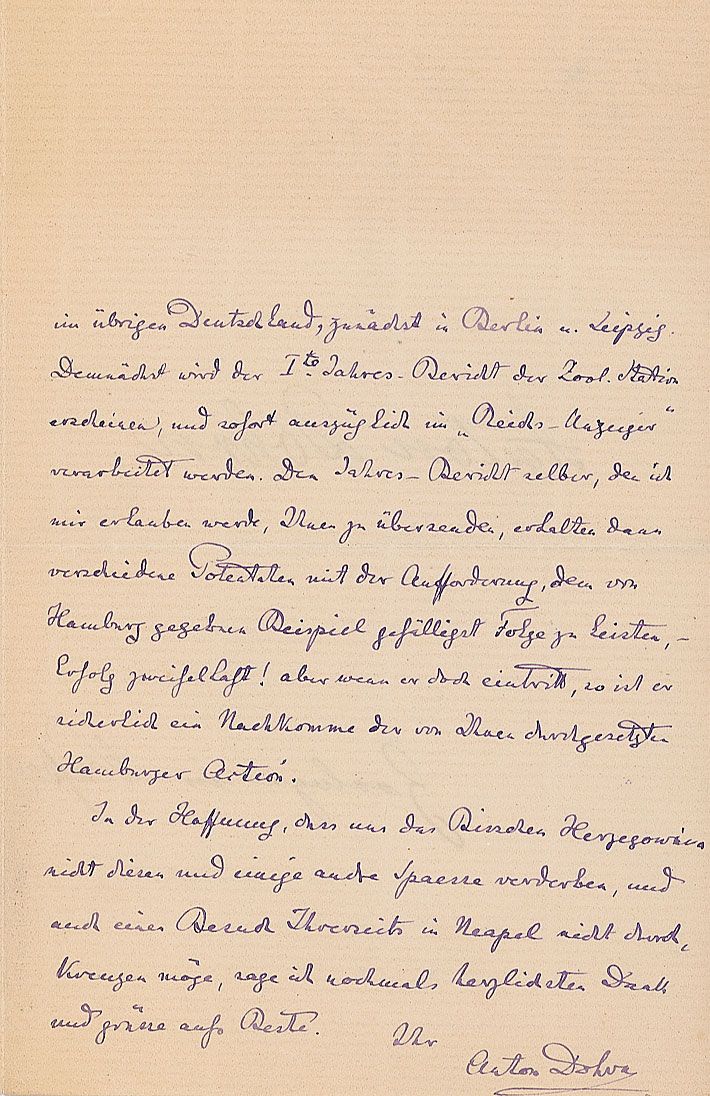 im übrigen Deutschland, zunächst in Berlin u. Leipzig.
Demnächst wird der Ite. Jahres-Bericht der Zool. Station
erscheinen, und sofort auszüglich im „Reichs-Anzeiger"
verarbeitet werden. Den Jahres-Bericht selber, den ich
mir erlauben werde, Ihnen zu übersenden, erhalten dann
verschiedene Potentaten mit der Aufforderung, dem von
Hamburg gegebnen Beispiel gefälligst Folge zu leisten, –
Erfolg zweifelhaft! aber wenn er doch eintritt, so ist er
sicherlich ein Nachkomme der von Ihnen durchgesetzten
Hamburger Action.
In der Hoffnung, dass uns das Bisschen Herzegowina
nicht diesen und einige andre Spaesse verderben, und
auch einen Besuch Ihrerseits in Neapel nicht durch-
kreuzen möge, sage ich nochmals herzlichsten Dank
und grüsse aufs Beste.
Ihr
Anton Dohrn